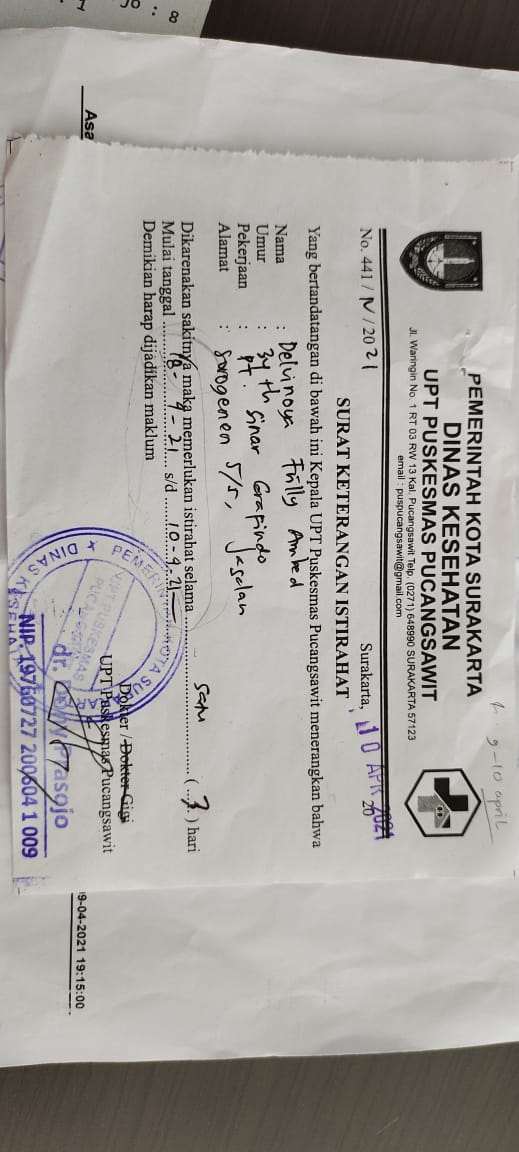 PEMERINTAH KOTA SURAKARTA
DINAS KESEHATAN
UPT PUSKESMAS PUCANGSAWIT
Jl. Waringin No. 1 RT 03 RW 13 Kal. Pucangsawit Telp. (0271) 648990 SURAKARTA 57123
email : puspucangsawit@gmail.com
9-10 april
No. 441 / IV / 2021
Surakarta, 10 APR 2021
20
SURAT KETERANGAN ISTIRAHAT
Yang bertandatangan di bawah ini Kepala UPT Puskesmas Pucangsawit menerangkan bahwa
Nama :
Umur : 34 th
Pekerjaan : PT. Sinar Grafindo
Alamat : Sorogenen 5/5,
Dikarenakan sakitnya maka memerlukan istirahat selama ( ) hari
Mulai tanggal s/d 10-4-21
Demikian harap dijadikan maklum
Dokter / Dokter Gigi
UPT Puskesmas Pucangsawit
dr.
NIP. 19760727 200604 1 009
PEMERINTAH KOTA SURAKARTA
DINAS KESEHATAN
UPT PUSKESMAS
PUCANGSAWIT
Asa
9-04-2021 19:15:00
: 8